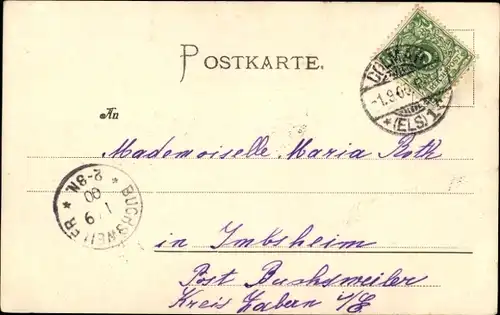 POSTKARTE.
COLMAR
-1.9.00
*(ELS)1*
An
Mademoiselle Maria Roth
BUCHSWEILER
1 9
00
2-8N.
in Imbsheim
Post Buchsweiler
Kreis Zabern i/E